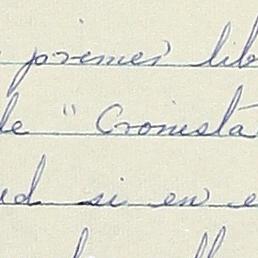 primer lib
de " Cronista
ed si en e